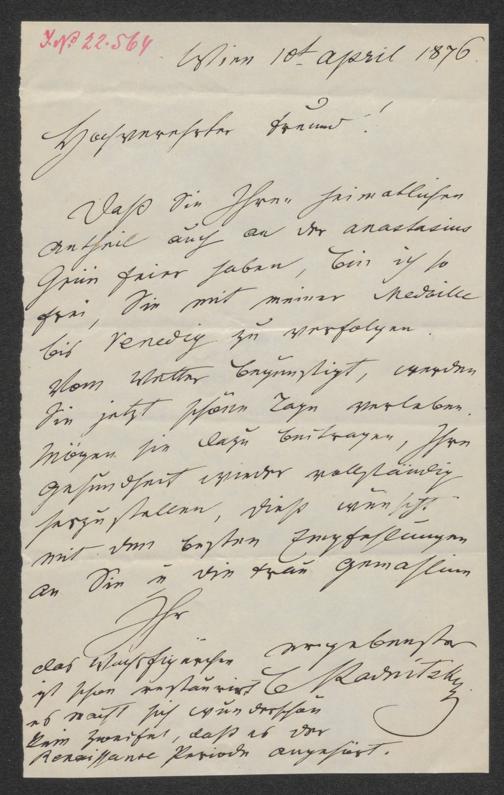 I.N. 22.564
Wien 10t April 1876.
Hochverehrter Freund!
Daß Sie Ihren heimatlichen
Antheil auch an der Anastasius
Grün Feier haben, bin ich so
frei, Sie mit meiner Medaille
bis Venedig zu verfolgen.
Vom Wetter begünstigt, werden
Sie jetzt schöne Tage verleben.
Mögen sie dazu beitragen, Ihre
Gesundheit wieder vollständig
herzustellen, dieß wünscht
mit den besten Empfehlungen
an Sie u die Frau Gemahlinn
Ihr
ergebenster
C Radnitzky
das Wachsfigürchen
ist schon restaurirt
es macht sich wunderschön
kein Zweifel, daß es der
Renaissance Periode angehört.